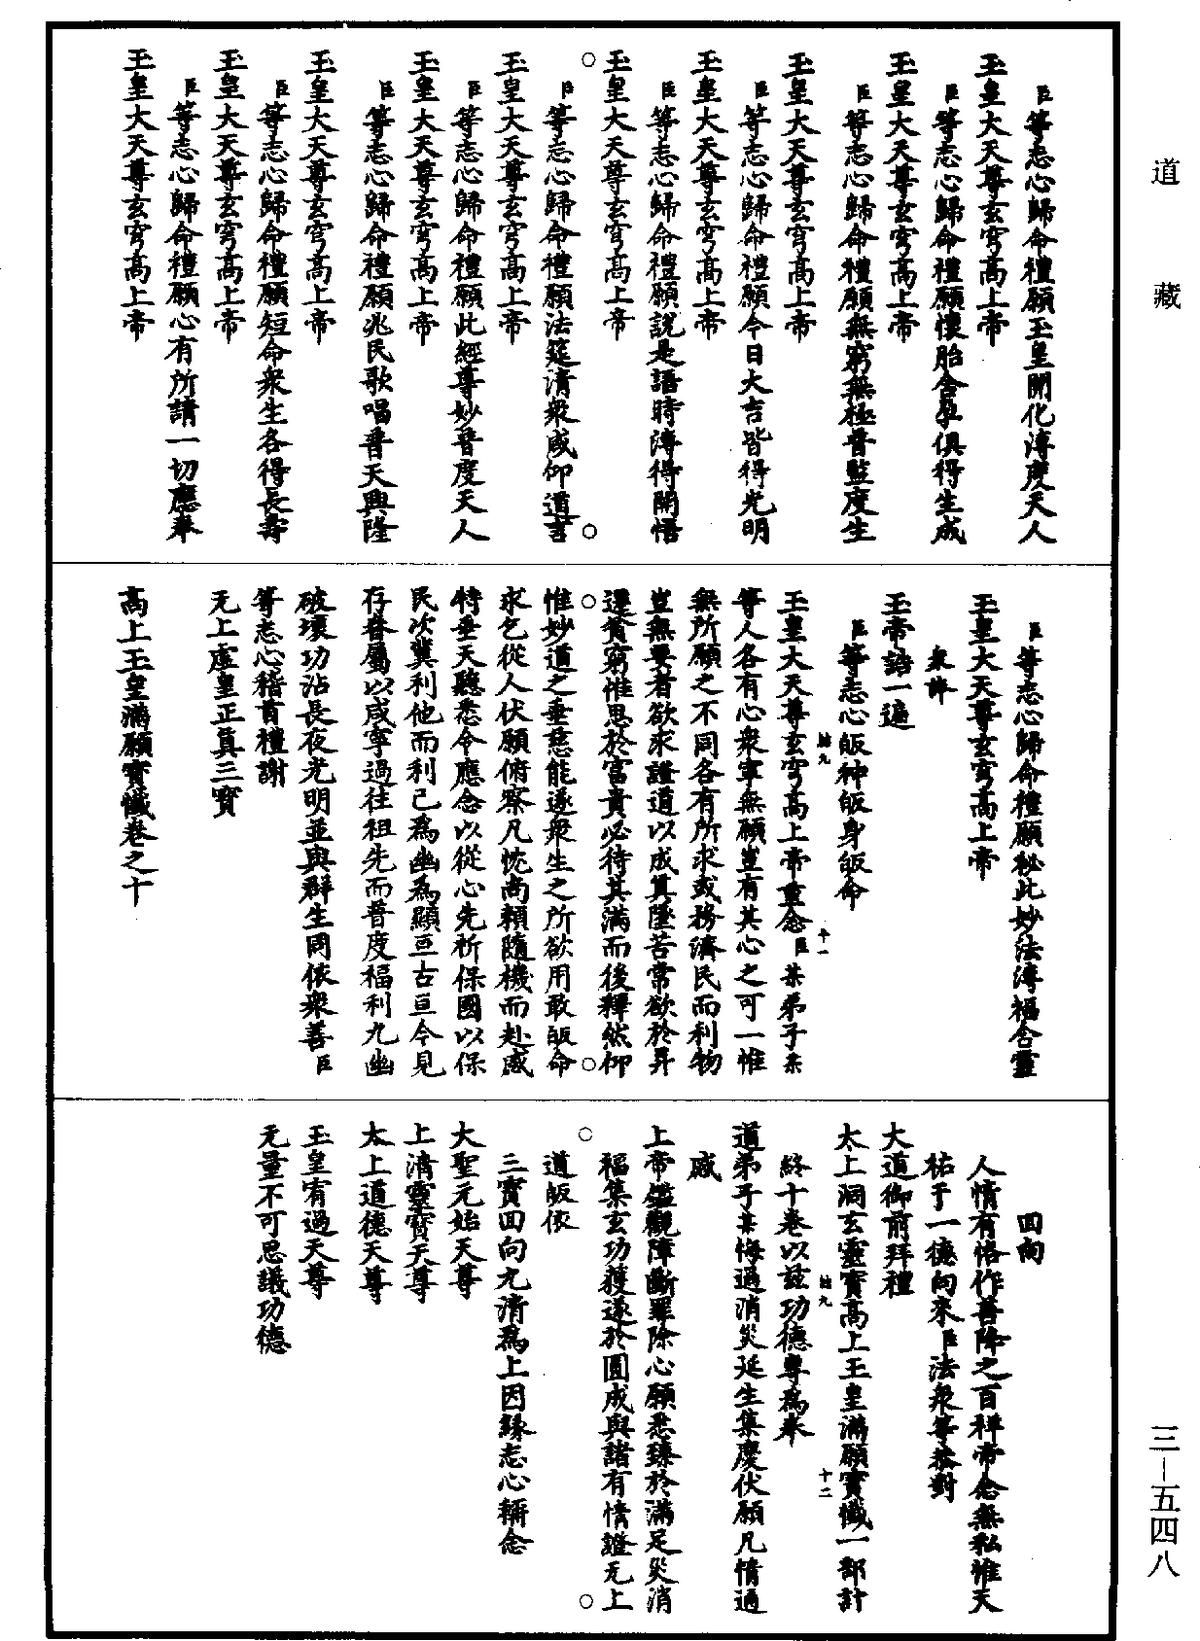 道藏
臣等志心歸命禮願玉皇開化溥度天人
玉皇大天尊玄穹高上帝
臣等志心歸命禮願懷胎含孕俱得生成
玉皇大天尊玄穹高上帝
臣等志心歸命禮願無窮無極普監度生
玉皇大天尊玄穹高上帝
臣等志心歸命禮願今日大吉皆得光明
玉皇大天尊玄穹高上帝
臣等志心歸命禮願說是語時溥得開悟
玉皇大天尊玄穹高上帝
臣等志心歸命禮願法筵清衆咸仰道言
玉皇大天尊玄穹高上帝
臣等志心歸命禮願此經尊妙普度天人
玉皇大天尊玄穹高上帝
臣等志心歸命禮願兆民歌唱普天興隆
玉皇大天尊玄穹高上帝
臣等志心歸命禮願短命衆生各得長壽
玉皇大天尊玄穹高上帝
臣等志心歸命禮願心有所請一切應奉
玉皇大天尊玄穹高上帝
臣等志心歸命禮願秘此妙法溥福含靈
玉皇大天尊玄穹高上帝
衆誦
玉帝誥一遍
臣等志心皈神皈身皈命
玉皇大天尊玄穹高上帝重念臣某弟子某
等人各有心衆寧無願豈有其心之可一惟
無所願之不同各有所求或務濟民而利物
豈無要者欲求證道以成真墜苦常欲於昇
遷貧窮惟思於富貴必待其滿而後釋然仰
惟妙道之垂慈能遂衆生之所欲用敢皈命
求乞從人伏願俯察凡忱尚賴隨機而赴感
特垂天聽悉令應念以從心先祈保國以保
民次冀利他而利己爲幽爲顯亘古亘今見
存眷屬以咸寧過往祖先而普度福利九幽
破壞功沾長夜光明並與群生同依衆善臣
等志心稽首禮謝
无上虛皇正真三寶
高上玉皇滿願寶懺卷之十
回向
人情有悋作善降之百祥帝念無私惟天
祐于一德向來臣法衆等恭對
大道御前拜禮
太上洞玄靈寶高上玉皇滿願寶懺一部計
終十卷以茲功德專爲奉
道弟子某悔過消災延生集慶伏願凡情通
感
上帝鑑觀障斷罪除心願悉臻於滿足災消
福集玄功獲遂於圓成與諸有情證无上
道皈依
三寶回向九清爲上因緣志心稱念
大聖元始天尊
上清靈寶天尊
太上道德天尊
玉皇宥過天尊
无量不可思議功德
三—五四八